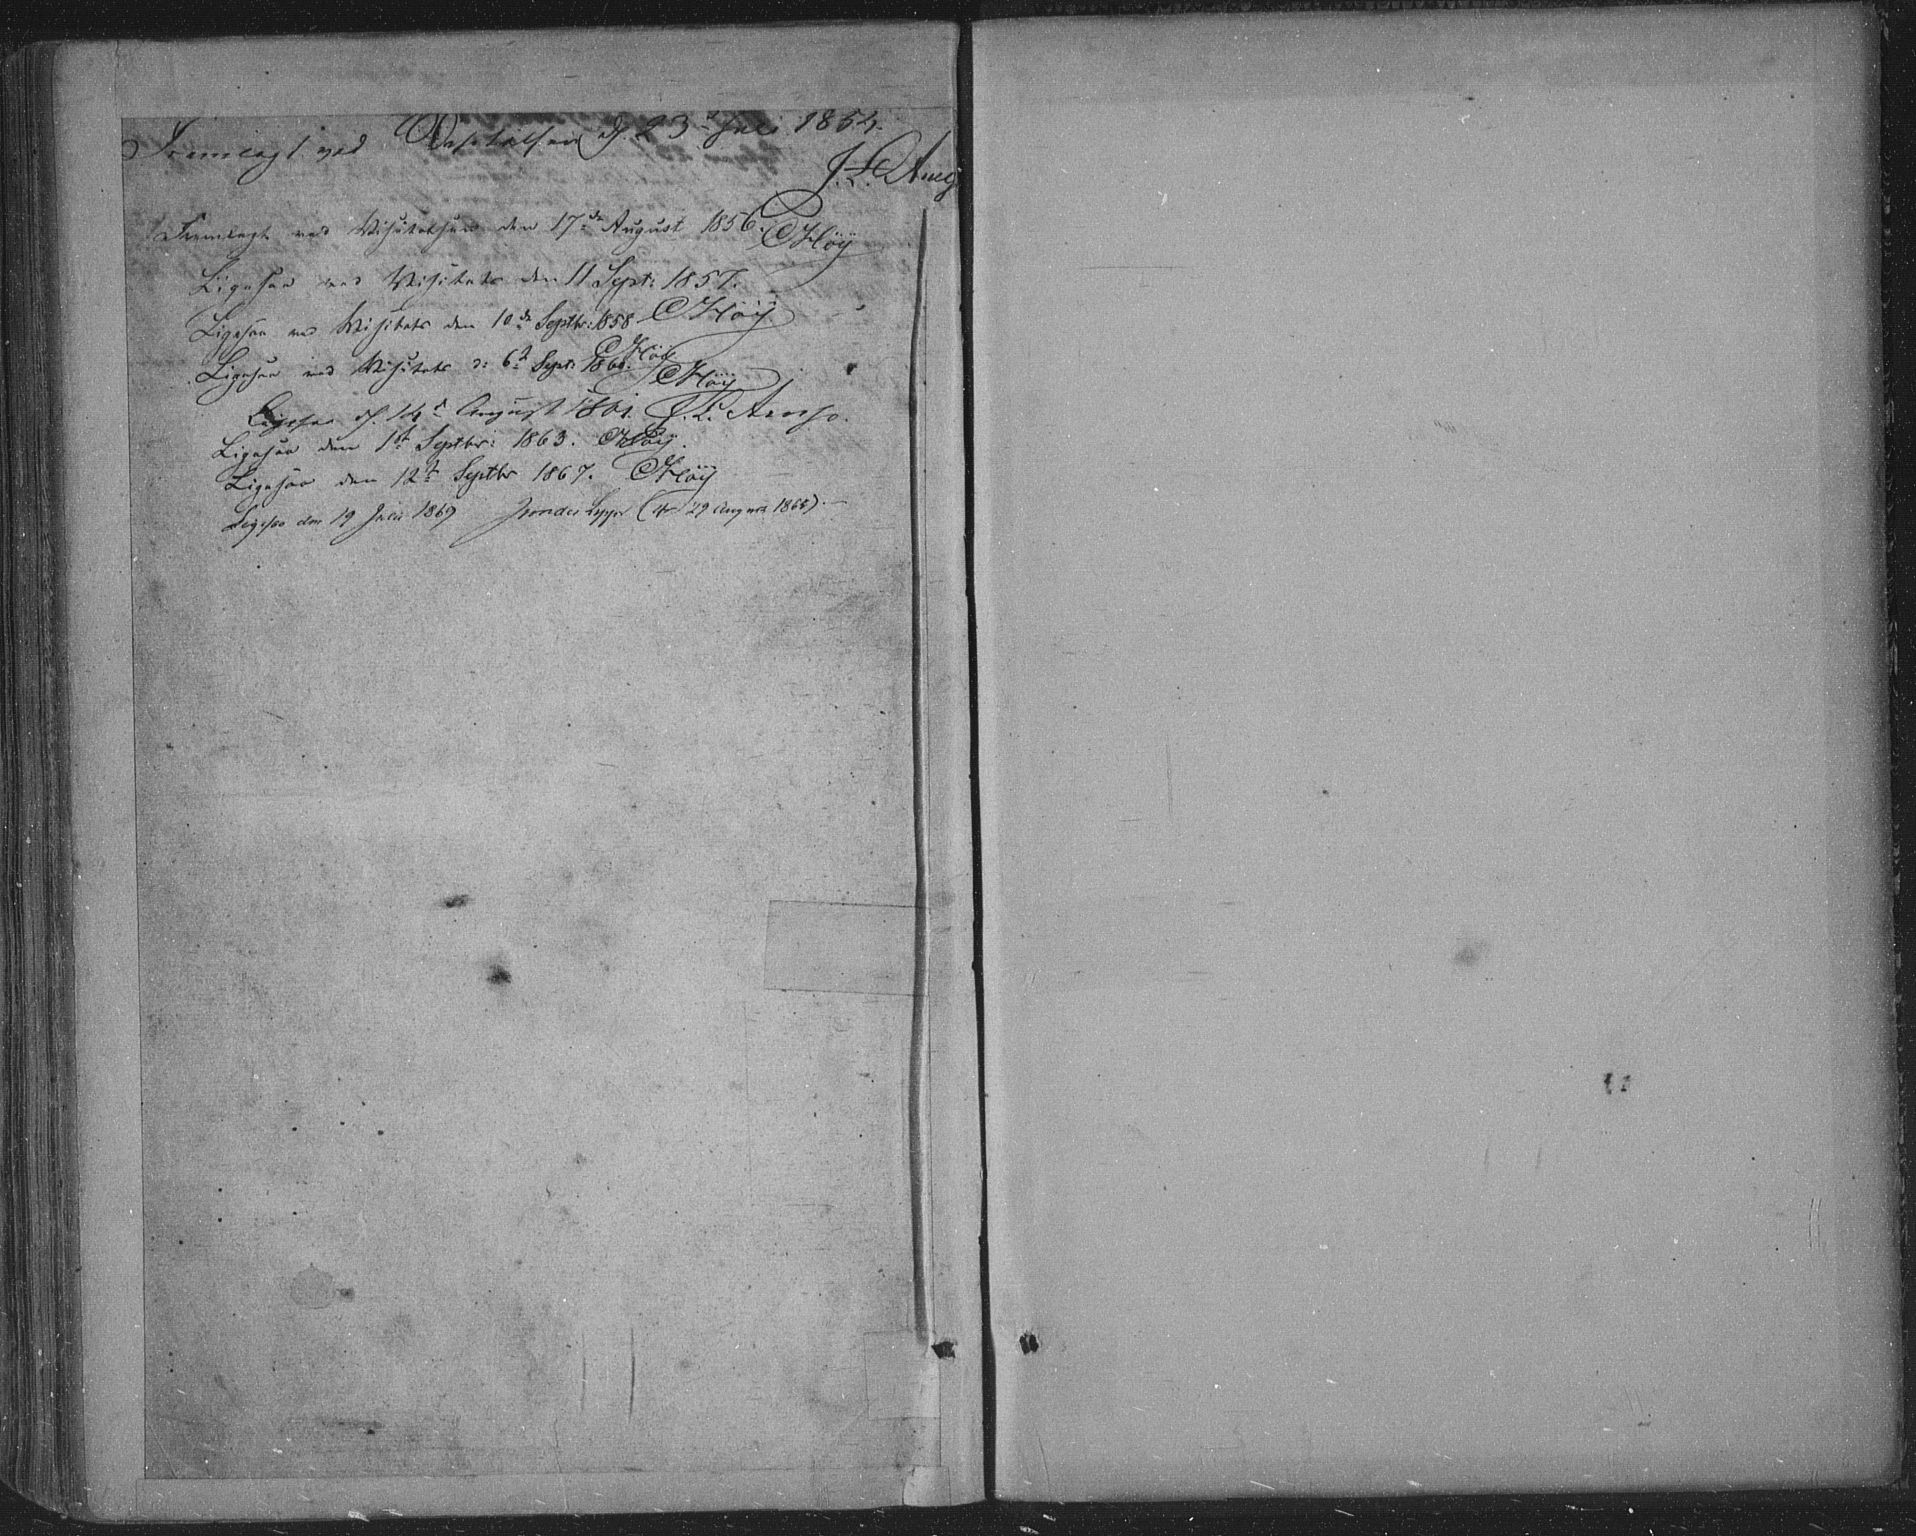 Fremlagt ved Visitatsen d. 23d Juli 1854.
J. L. Arup
Fremlagt ved Visitatsen den 17de August 1856. CHöÿ
Ligesaa ved Visitats den 11 Sept: 1857.
CHöÿ
Ligesaa ved Visitats den 10de Septbr: 1858
CHöÿ
Ligesaa ved Visitats d: 6te Sept: 1860. CHöÿ
Ligesaa d. 14d August 1861. J. L. Arup.
Ligesaa den 1ste Septbr: 1863. CHöÿ.
Ligesaa den 12te Septbr 1867. CHöÿ
Ligesaa den 19 Juli 1869 (29 August 1868).